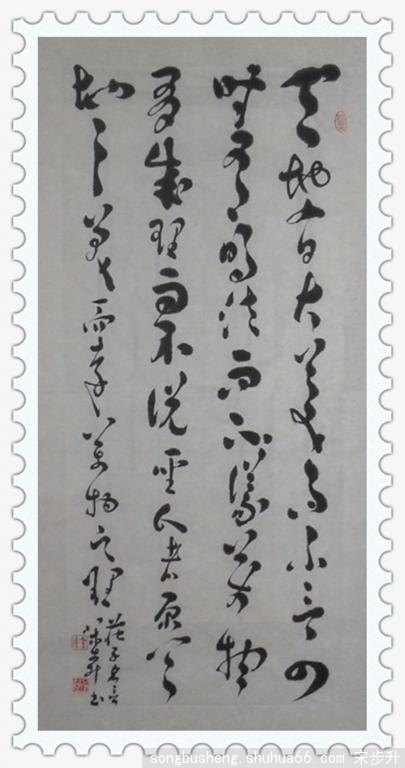 天地有大美而不言四
時有明法而不議萬物
有成理而不說聖人者原天
地之美而達萬物之理
莊子名言
步升书
songbusheng.shuhua66.com 宋步升